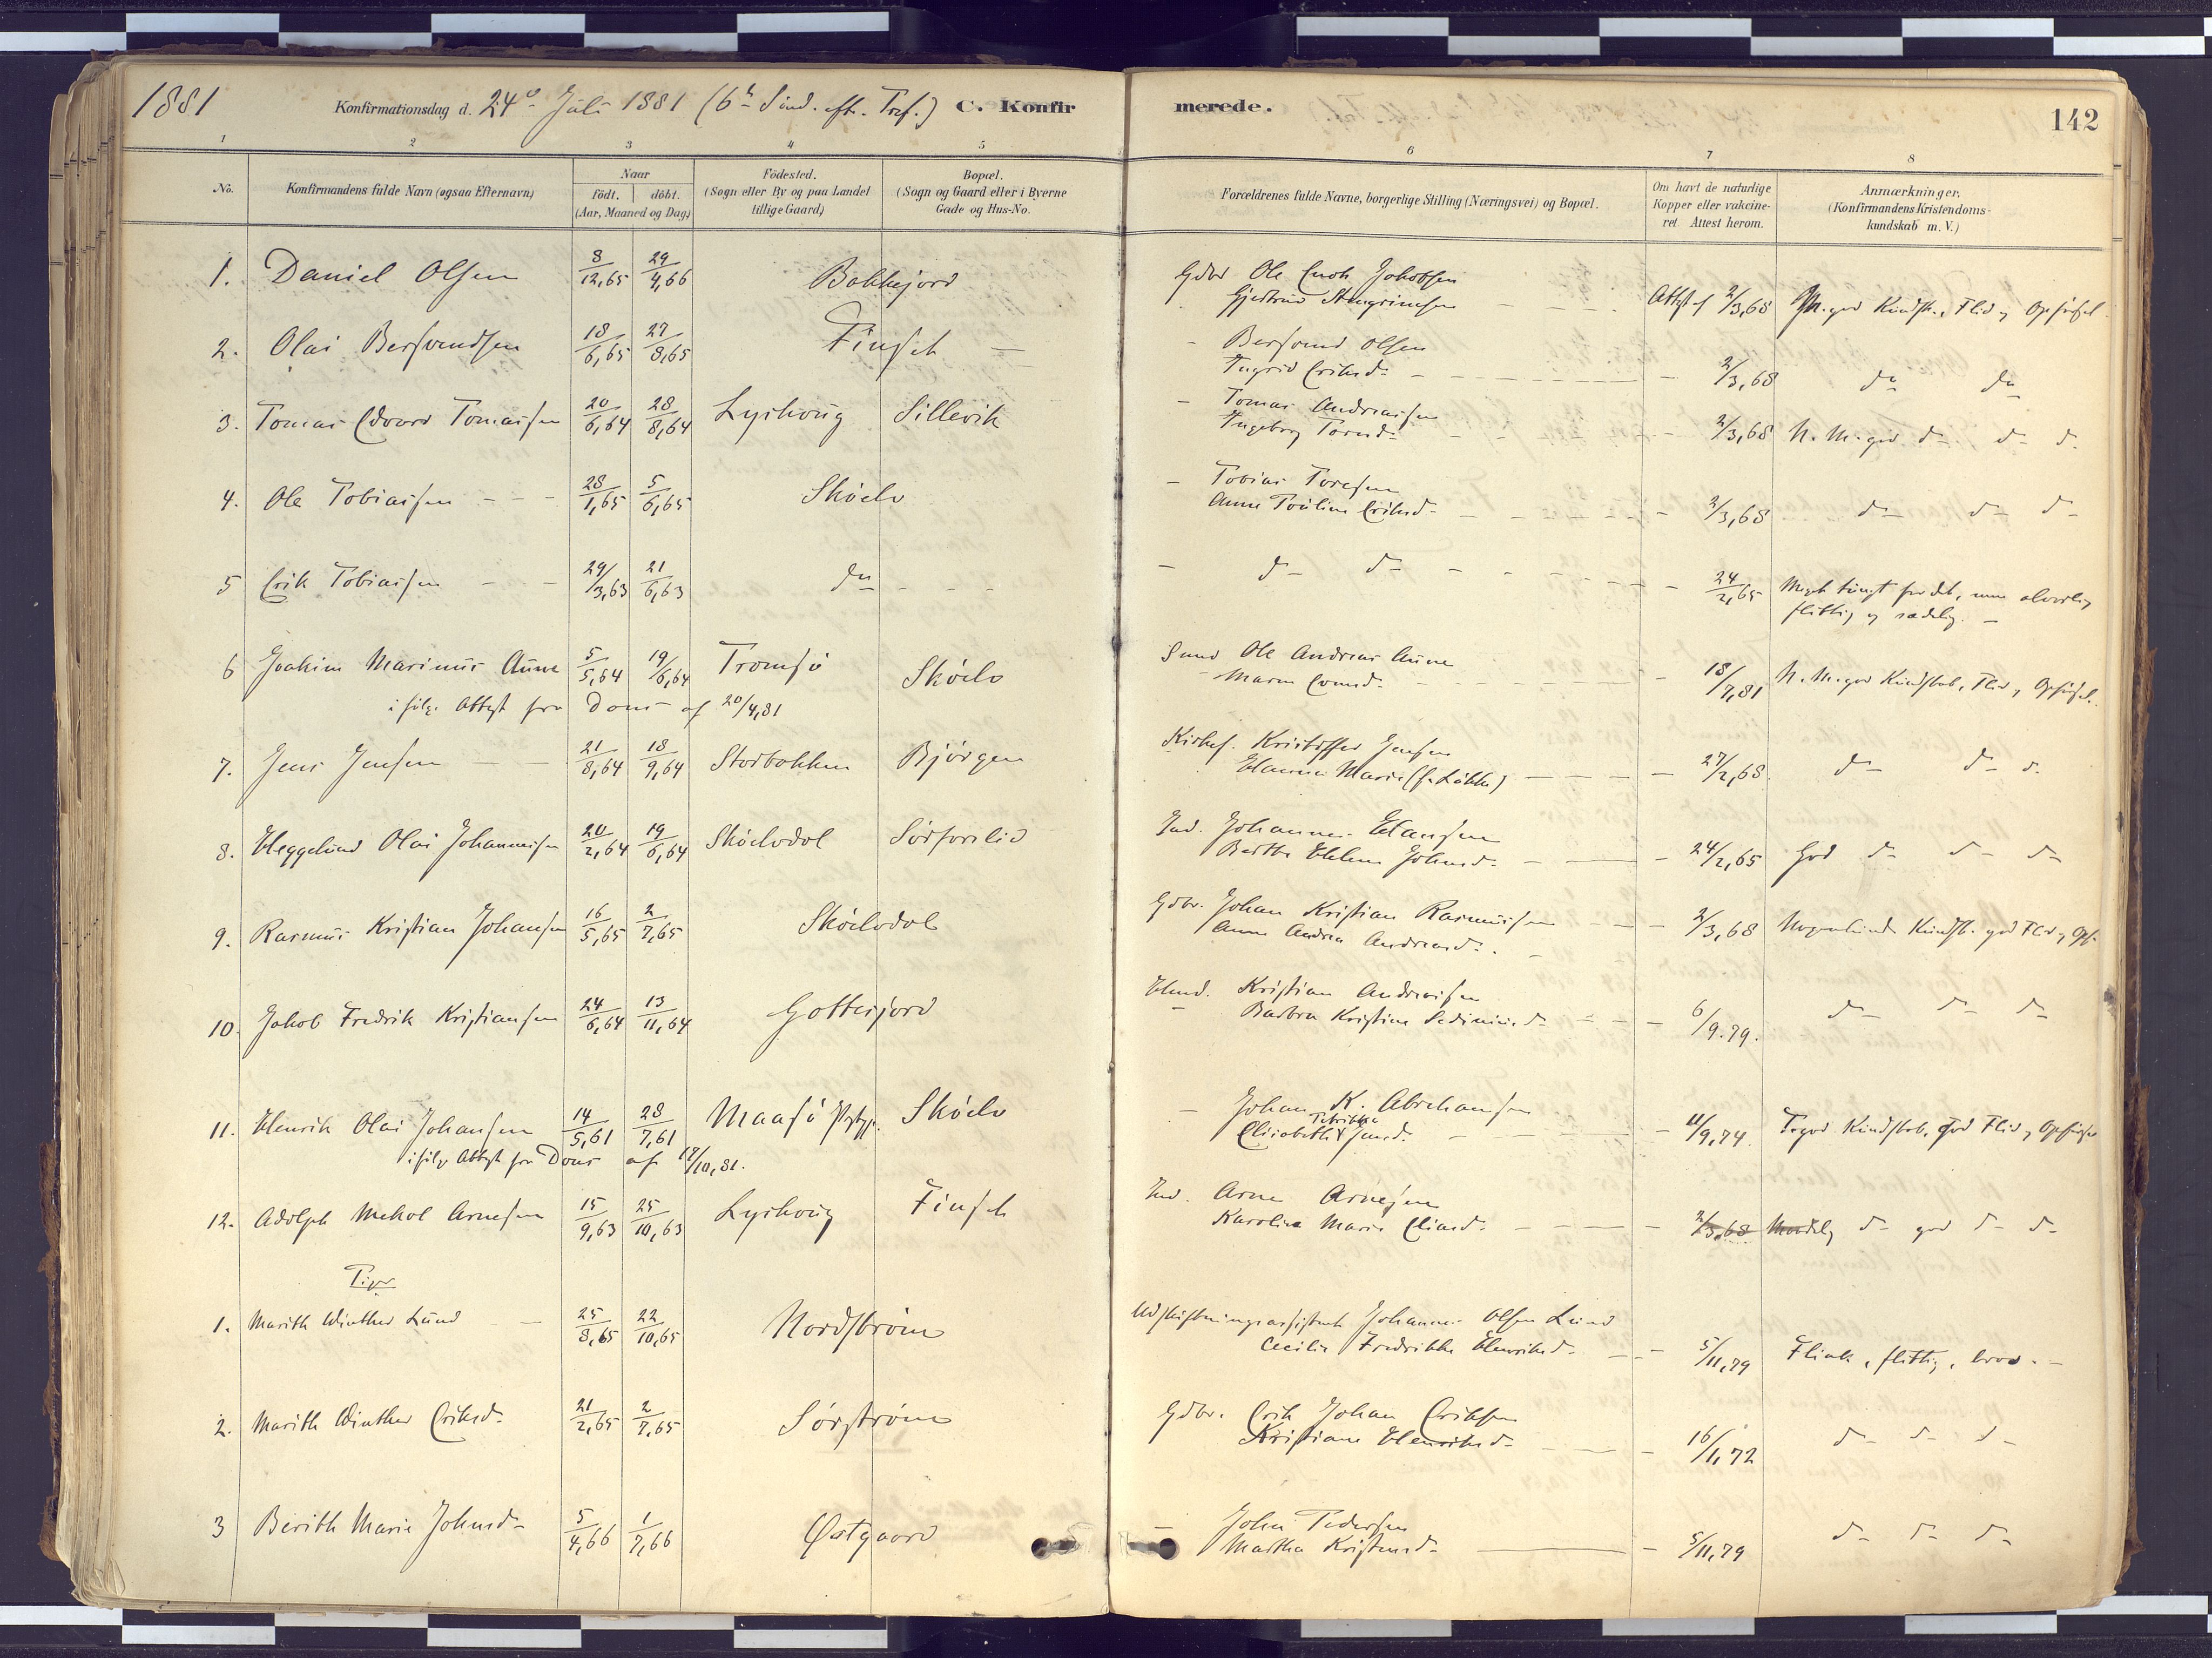 1881 Konfirmationsdag d. 24de Juli 1881 (6te Sönd. eft. Tref.) C. Konfirmerede. 142
1 2 3 4 5 6 7 8
No. Konfirmandens fulde Navn (ogsaa Efternavn) Naar födt. döbt. (Aar, Maaned og Dag) Födested. (Sogn eller By og paa Landet tillige Gaard) Bopæl. (Sogn og Gaard eller i Byerne Gade og Hus-No. Forældrenes fulde Navne, borgerlige Stilling (Næringsvei) og Bopæl. Om havt de naturlige Kopper eller vakcineret. Attest herom. Anmærkninger. (Konfirmandens Kristendomskundskab m. V.)
1. Daniel Olsen 8/12,65 29/4,66 Bakkejord Gdbr Ole Enok Jakobsen
Gjertrud Stengrimsen Attest af 2/3,68 M. god Kundsk., Flid og Opførsel
2. Olai Bersvendsen 18/6,65 27/8,65 Finset - Bersvend Olsen
Ingrid Eriksd. 2/3,68 do do
3. Tomas Edvard Tomassen 20/6,64 28/8,64 Lyshoug Sillevik - Tomas Andreassen
Ingeborg Toresd. 2/3,68 N. M. god d- d- d-
4. Ole Tobiassen 28/1,65 5/6,65 Skøelv - Tobias Toresen
Anne Pouline Eriksd. 2/3,68 d- d- d-
5 Erik Tobiassen 29/3,63 21/6,63 do - d- d- 24/2,65 Meget tungt, men alvorlig
flittig og sædelig.
6 Joakim Marinus Aune 5/5,64 19/6,64 Tromsø Skøelv Ole Andreas Aune
Maren 18/7,81 N. M. god Kundskab, Flid, Opførsel.
ifölge Attest fra Dons af 20/4,81
7. Jens Jensen 21/8,64 18/9,64 Storbakken Bjørgen Kristoffer Jensen
Hanna Marie (f. Løkke) 27/2,68. d- d- d-
8. Heggelund Olai Johannesen 20/2,64 19/6,64 Skøelvdal Sørforslid Ind. Johannes Hansen
Berthe Helene Johnsd. 24/2,65 God d- d- d-
9. Rasmus Kristian Johansen 16/5,65 2/7,65 Skøelvdal Gdbr. Johan Kristian Rasmussen
Anne Andrea Andreasd. 2/3,68 Kundsk. god Flid, Opf.
10. Jakob Fredrik Kristiansen 24/6,64 13/11,64 Gottesjord Hmd. Kristian Andreassen
Barbra Kristine 6/9.79. d- d- d-
11. Henrik Olai Johansen 14/5,61 28/7,61 Maasø Skøelv - Johan K. Abrahamsen
Elisabeth Jensd. 11/9,74. Tgod Kundskab, God Flid, Opførsel
ifölge Attest fra Dons af 18/10,81.
12. Adolph Mekal Arnesen 15/9,63 25/10,63 Lyshoug Finset Ind. Arne Arnesen
Karoline Marie Eliasd. 2/3,68 d- god d- d-
Piger
1. Marith Winther Lund 25/8,65 22/10,65 Nordstrøm Udskiftningsassistent Johannes Olsen Lund
Cecilie Fredrikke Henriksd. 5/11,79 Flink, flittig, brav.
2. Marith Winther Eriksd. 21/2,65 2/7,65 Sørstrøm Gdbr. Erik Johan Eriksen
Kristiane Henriksd. 16/1,72 d- d- d-
3 Berith Marie Johnsd. 5/4,66 1/7,66 Østgaard - John Pedersen
Martha Kristensd. 5/11,79 d- d- d-